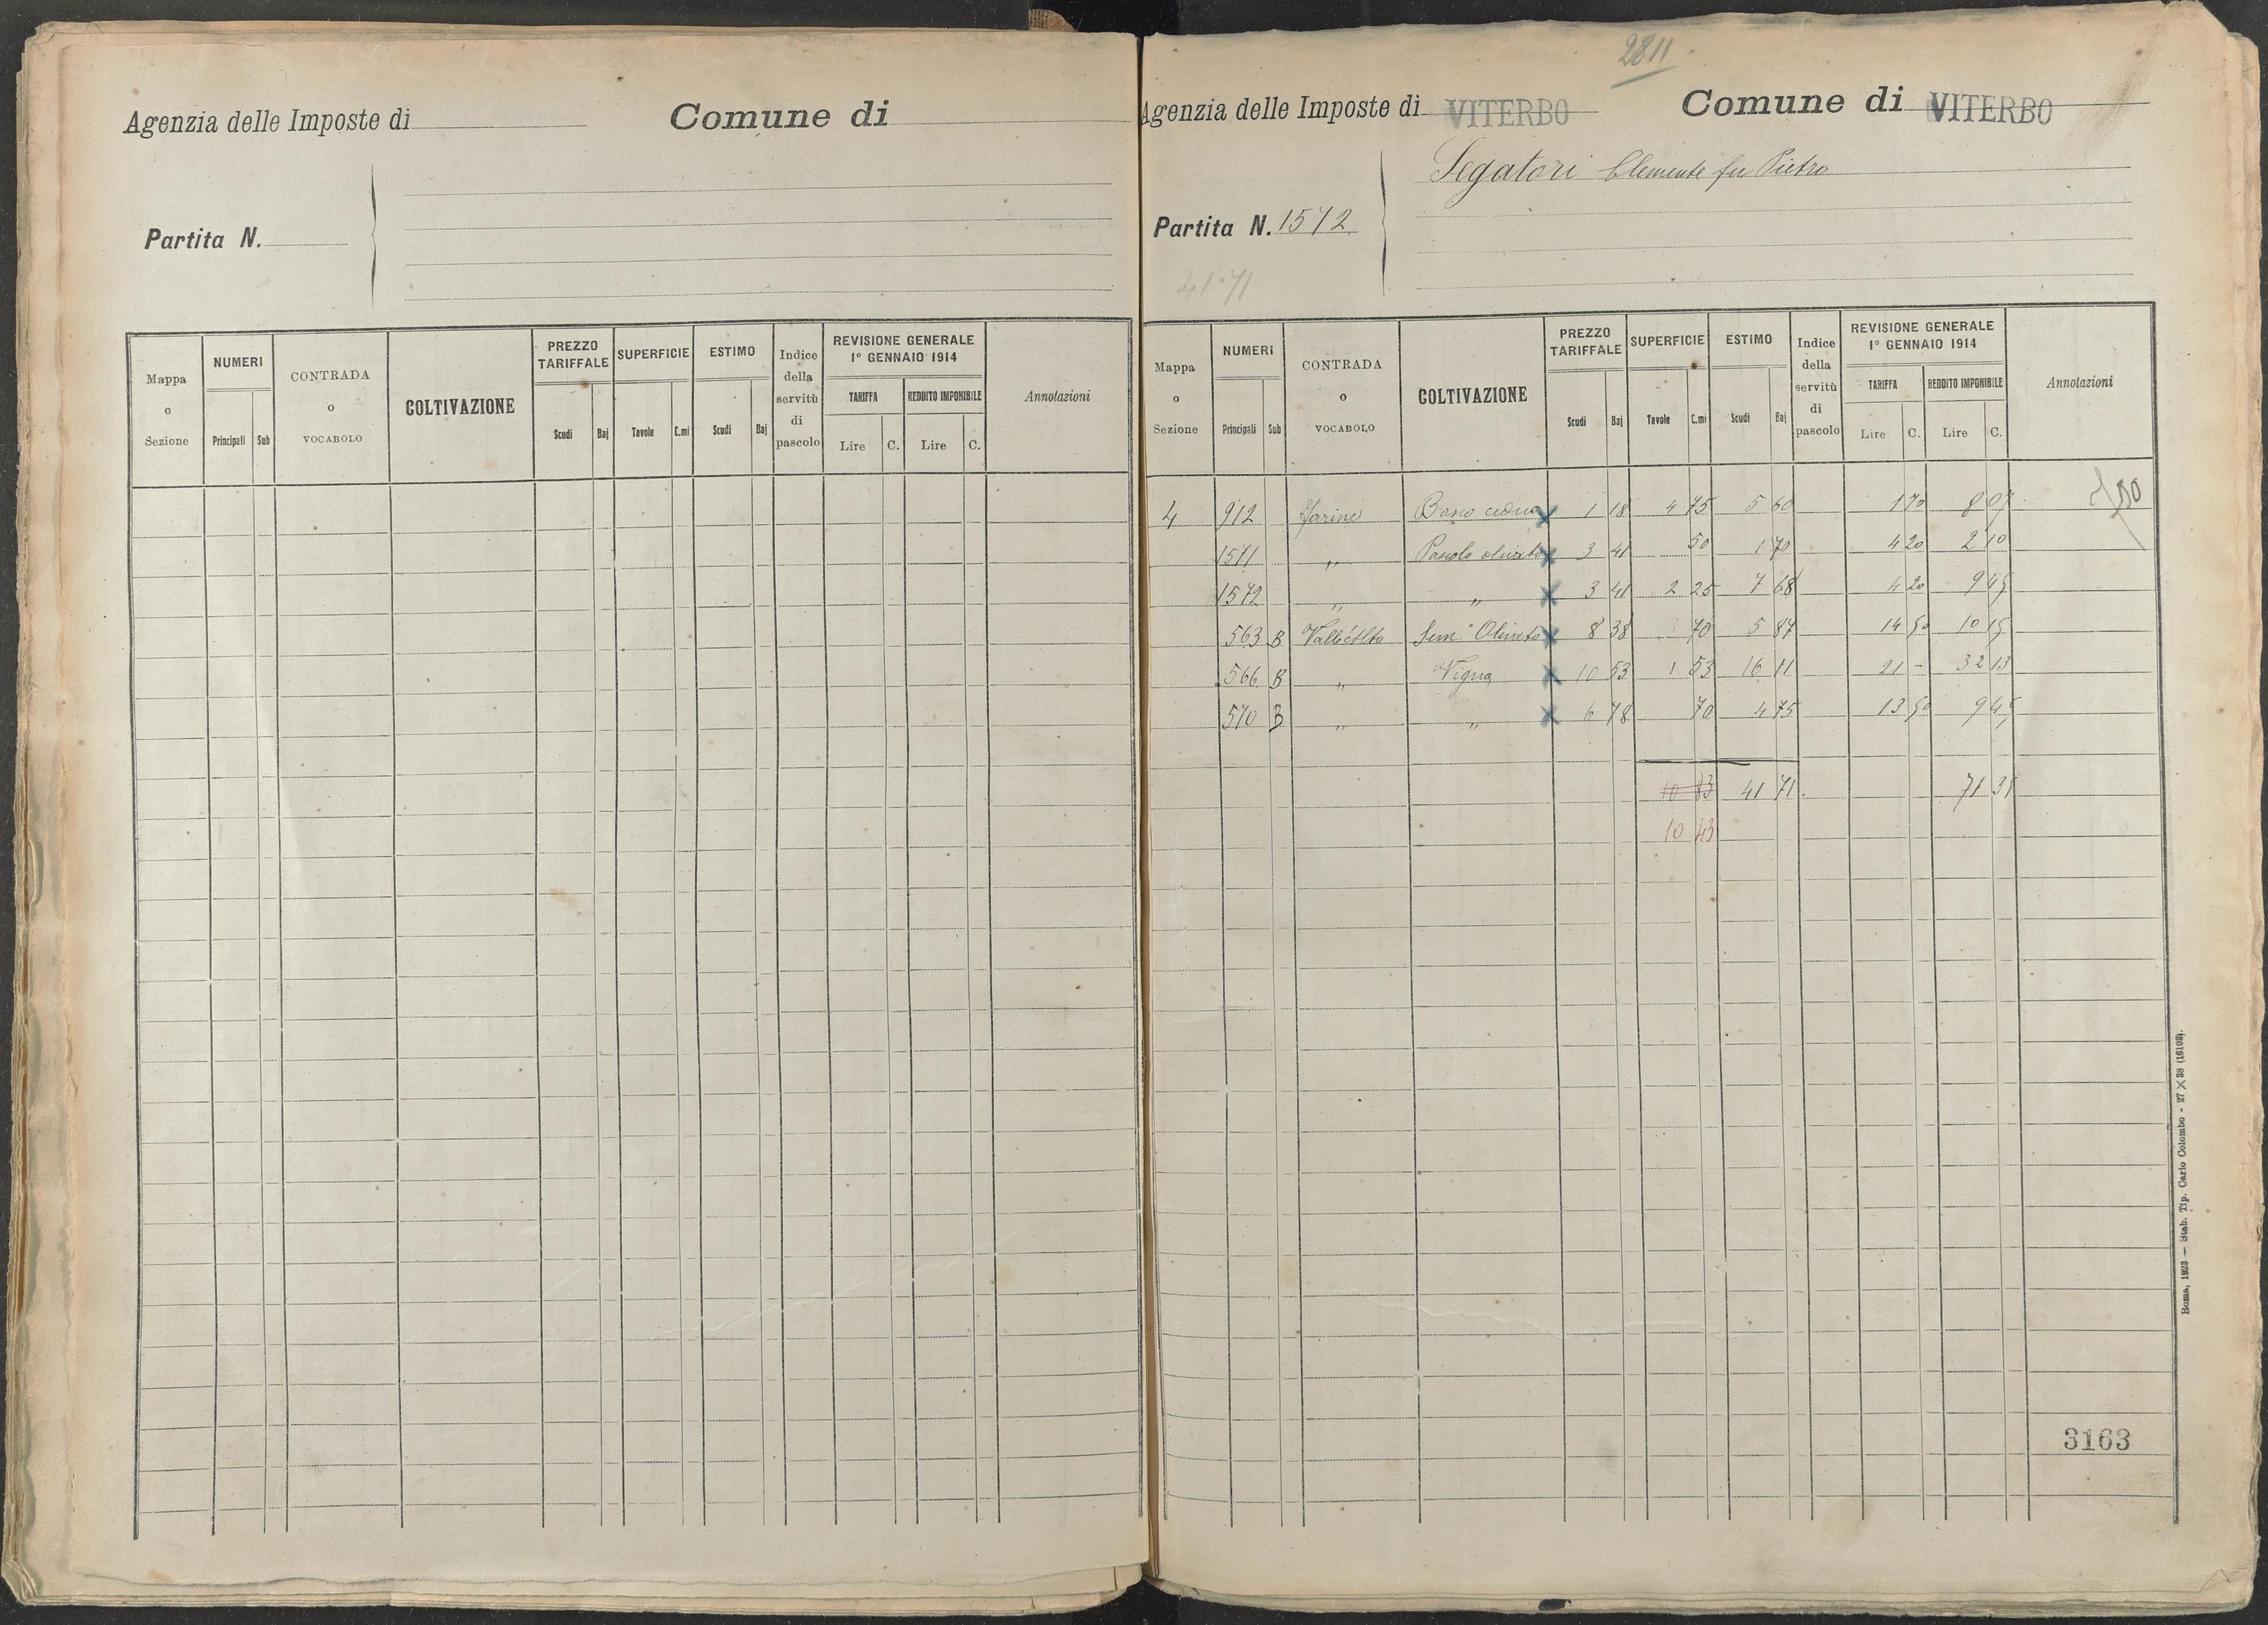 Agenzia delle Imposte di
Comune di
Partita N.
Mappa o Sezione
NUMERI
Principali Sub
CONTRADA o VOCABOLO
COLTIVAZIONE
PREZZO TARIFFALE
Scudi Baj
SUPERFICIE
Tavole C.mi
ESTIMO
Scudi Baj
Indice della servitù di pascolo
REVISIONE GENERALE
1° GENNAIO 1914
TARIFFA REDDITO IMPONIBILE
Lire C. Lire C.
Annotazioni
2811
Agenzia delle Imposte di VITERBO
Comune di VITERBO
Segatori Clemente fu Pietro
Partita N. 1572
41.71
Mappa o Sezione
NUMERI
Principali Sub
CONTRADA o VOCABOLO
COLTIVAZIONE
PREZZO TARIFFALE
Scudi Baj
SUPERFICIE
Tavole C.mi
ESTIMO
Scudi Baj
Indice della servitù di pascolo
REVISIONE GENERALE
1° GENNAIO 1914
TARIFFA REDDITO IMPONIBILE
Lire C. Lire C.
Annotazioni
4 912 Bosco ceduo x 1 18 4 75 5 60 1 70 8 07
1571 " Pascolo olivato x 3 41 50 1 70 4 20 2 10
1572 " " x 3 41 2 25 7 68 4 20 9 45
563 B Sem° Olivato x 8 38 70 5 87 14 50 10 15
566 B " Vigna x 10 53 1 53 16 11 21 - 32 13
570 B " " x 6 78 70 4 75 13 50 9 45
10 83 41 71 71 35
10 43
3163
Roma, 1923 — Stab. Tip. Carlo Colombo - 27 X 38 (16103).